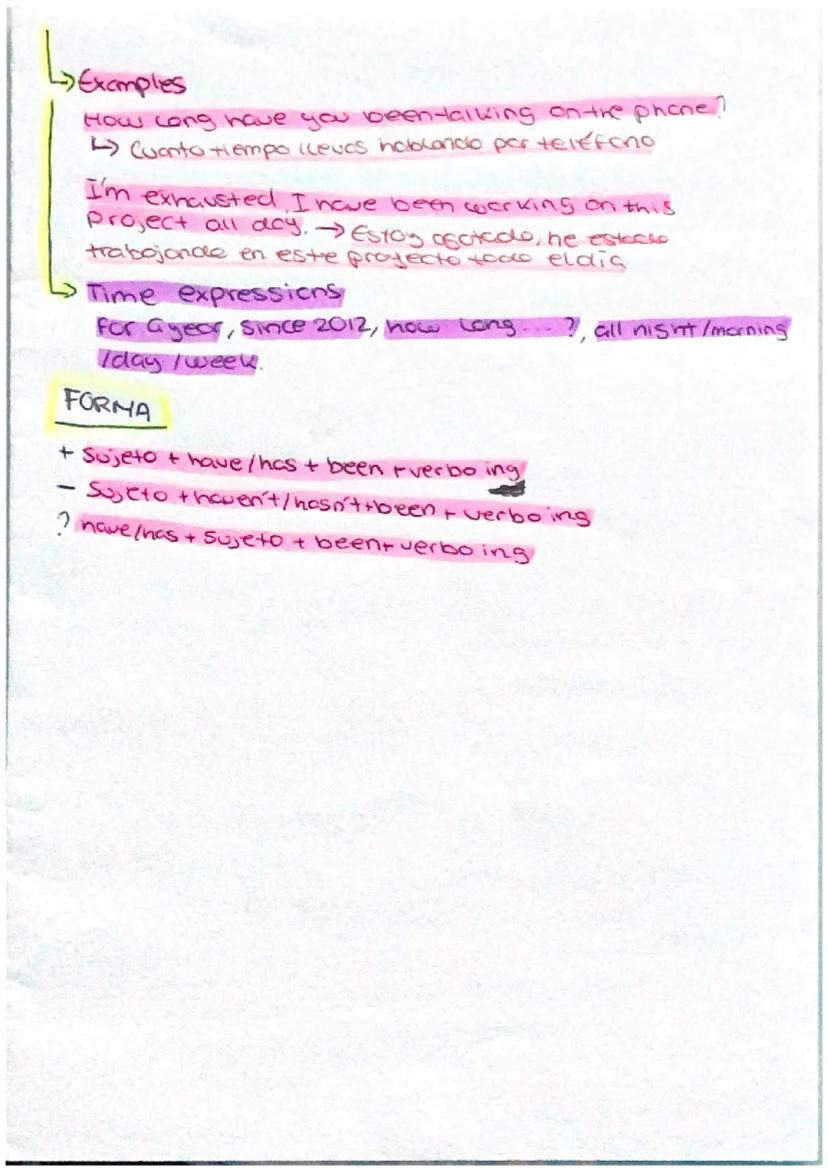 ↳ Examples
How long have you been talking on the phone?
↳ Cuanto tiempo llevas hablando por teléfono
I'm exhausted, I have been working on this
project all day. → Estoy agotado, he estado
trabajando en este proyecto todo el día
↳ Time expressions
For a year, since 2012, how long ... ?, all night/morning
/day/week.
FORMA
+ Sujeto + have/has + been + verbo ing
- Sujeto + haven't/hasn't + been + verbo ing
? have/has + sujeto + been + verbo ing